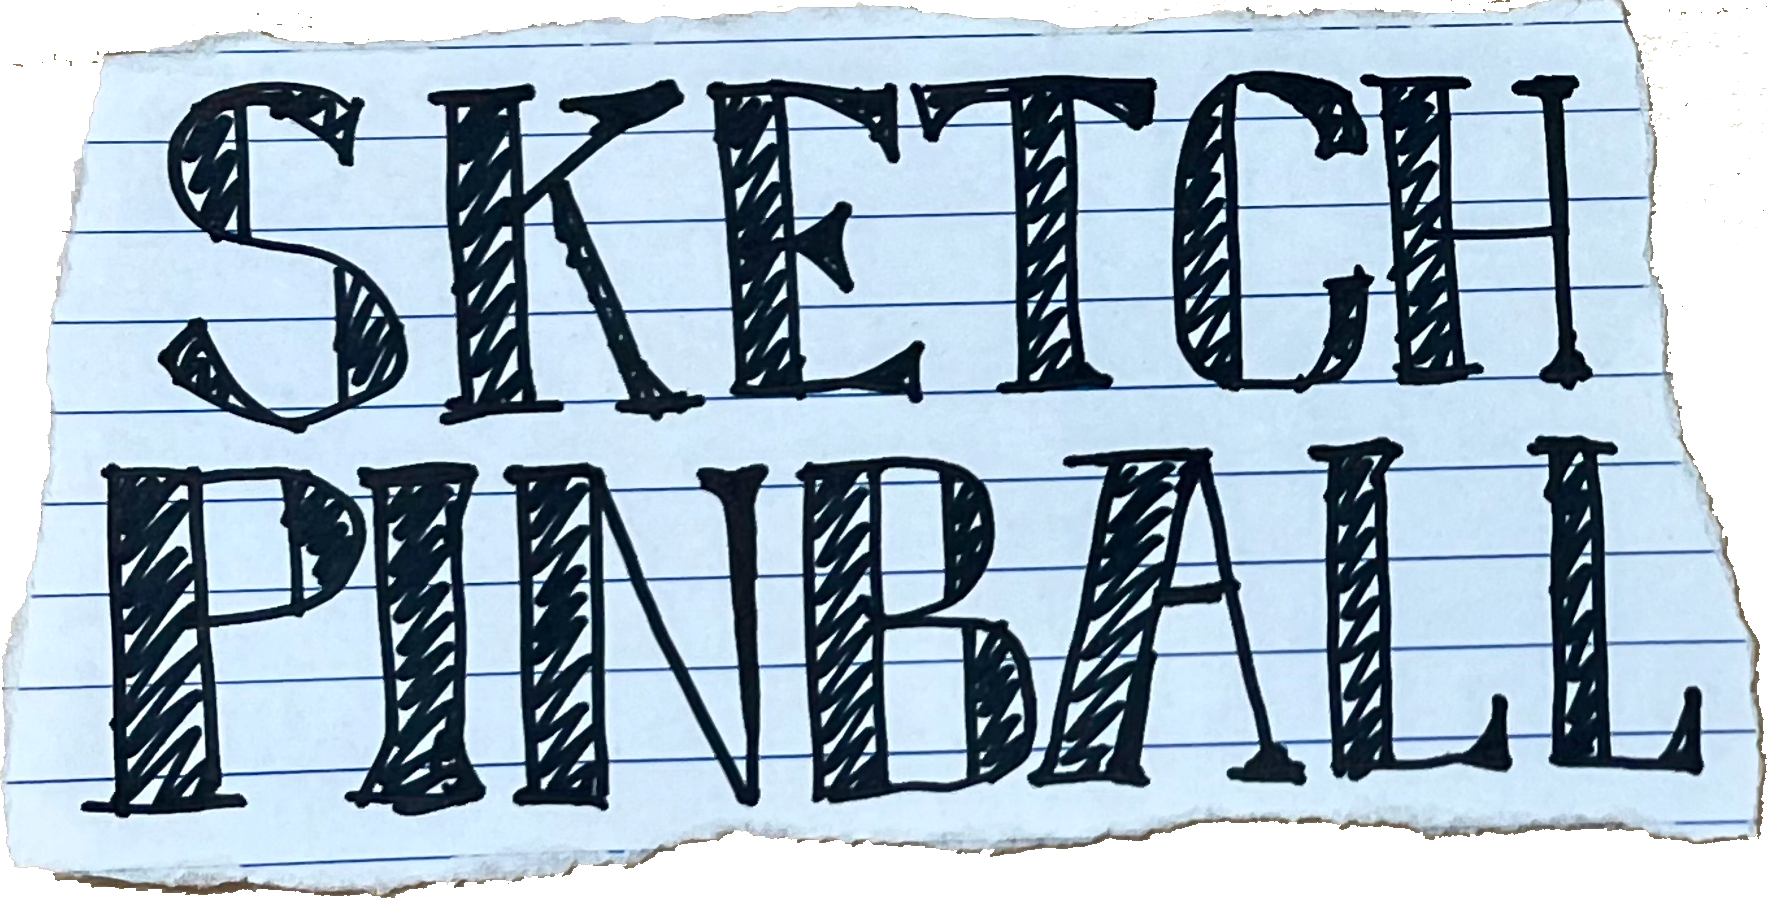 SKETCH
PINBALL